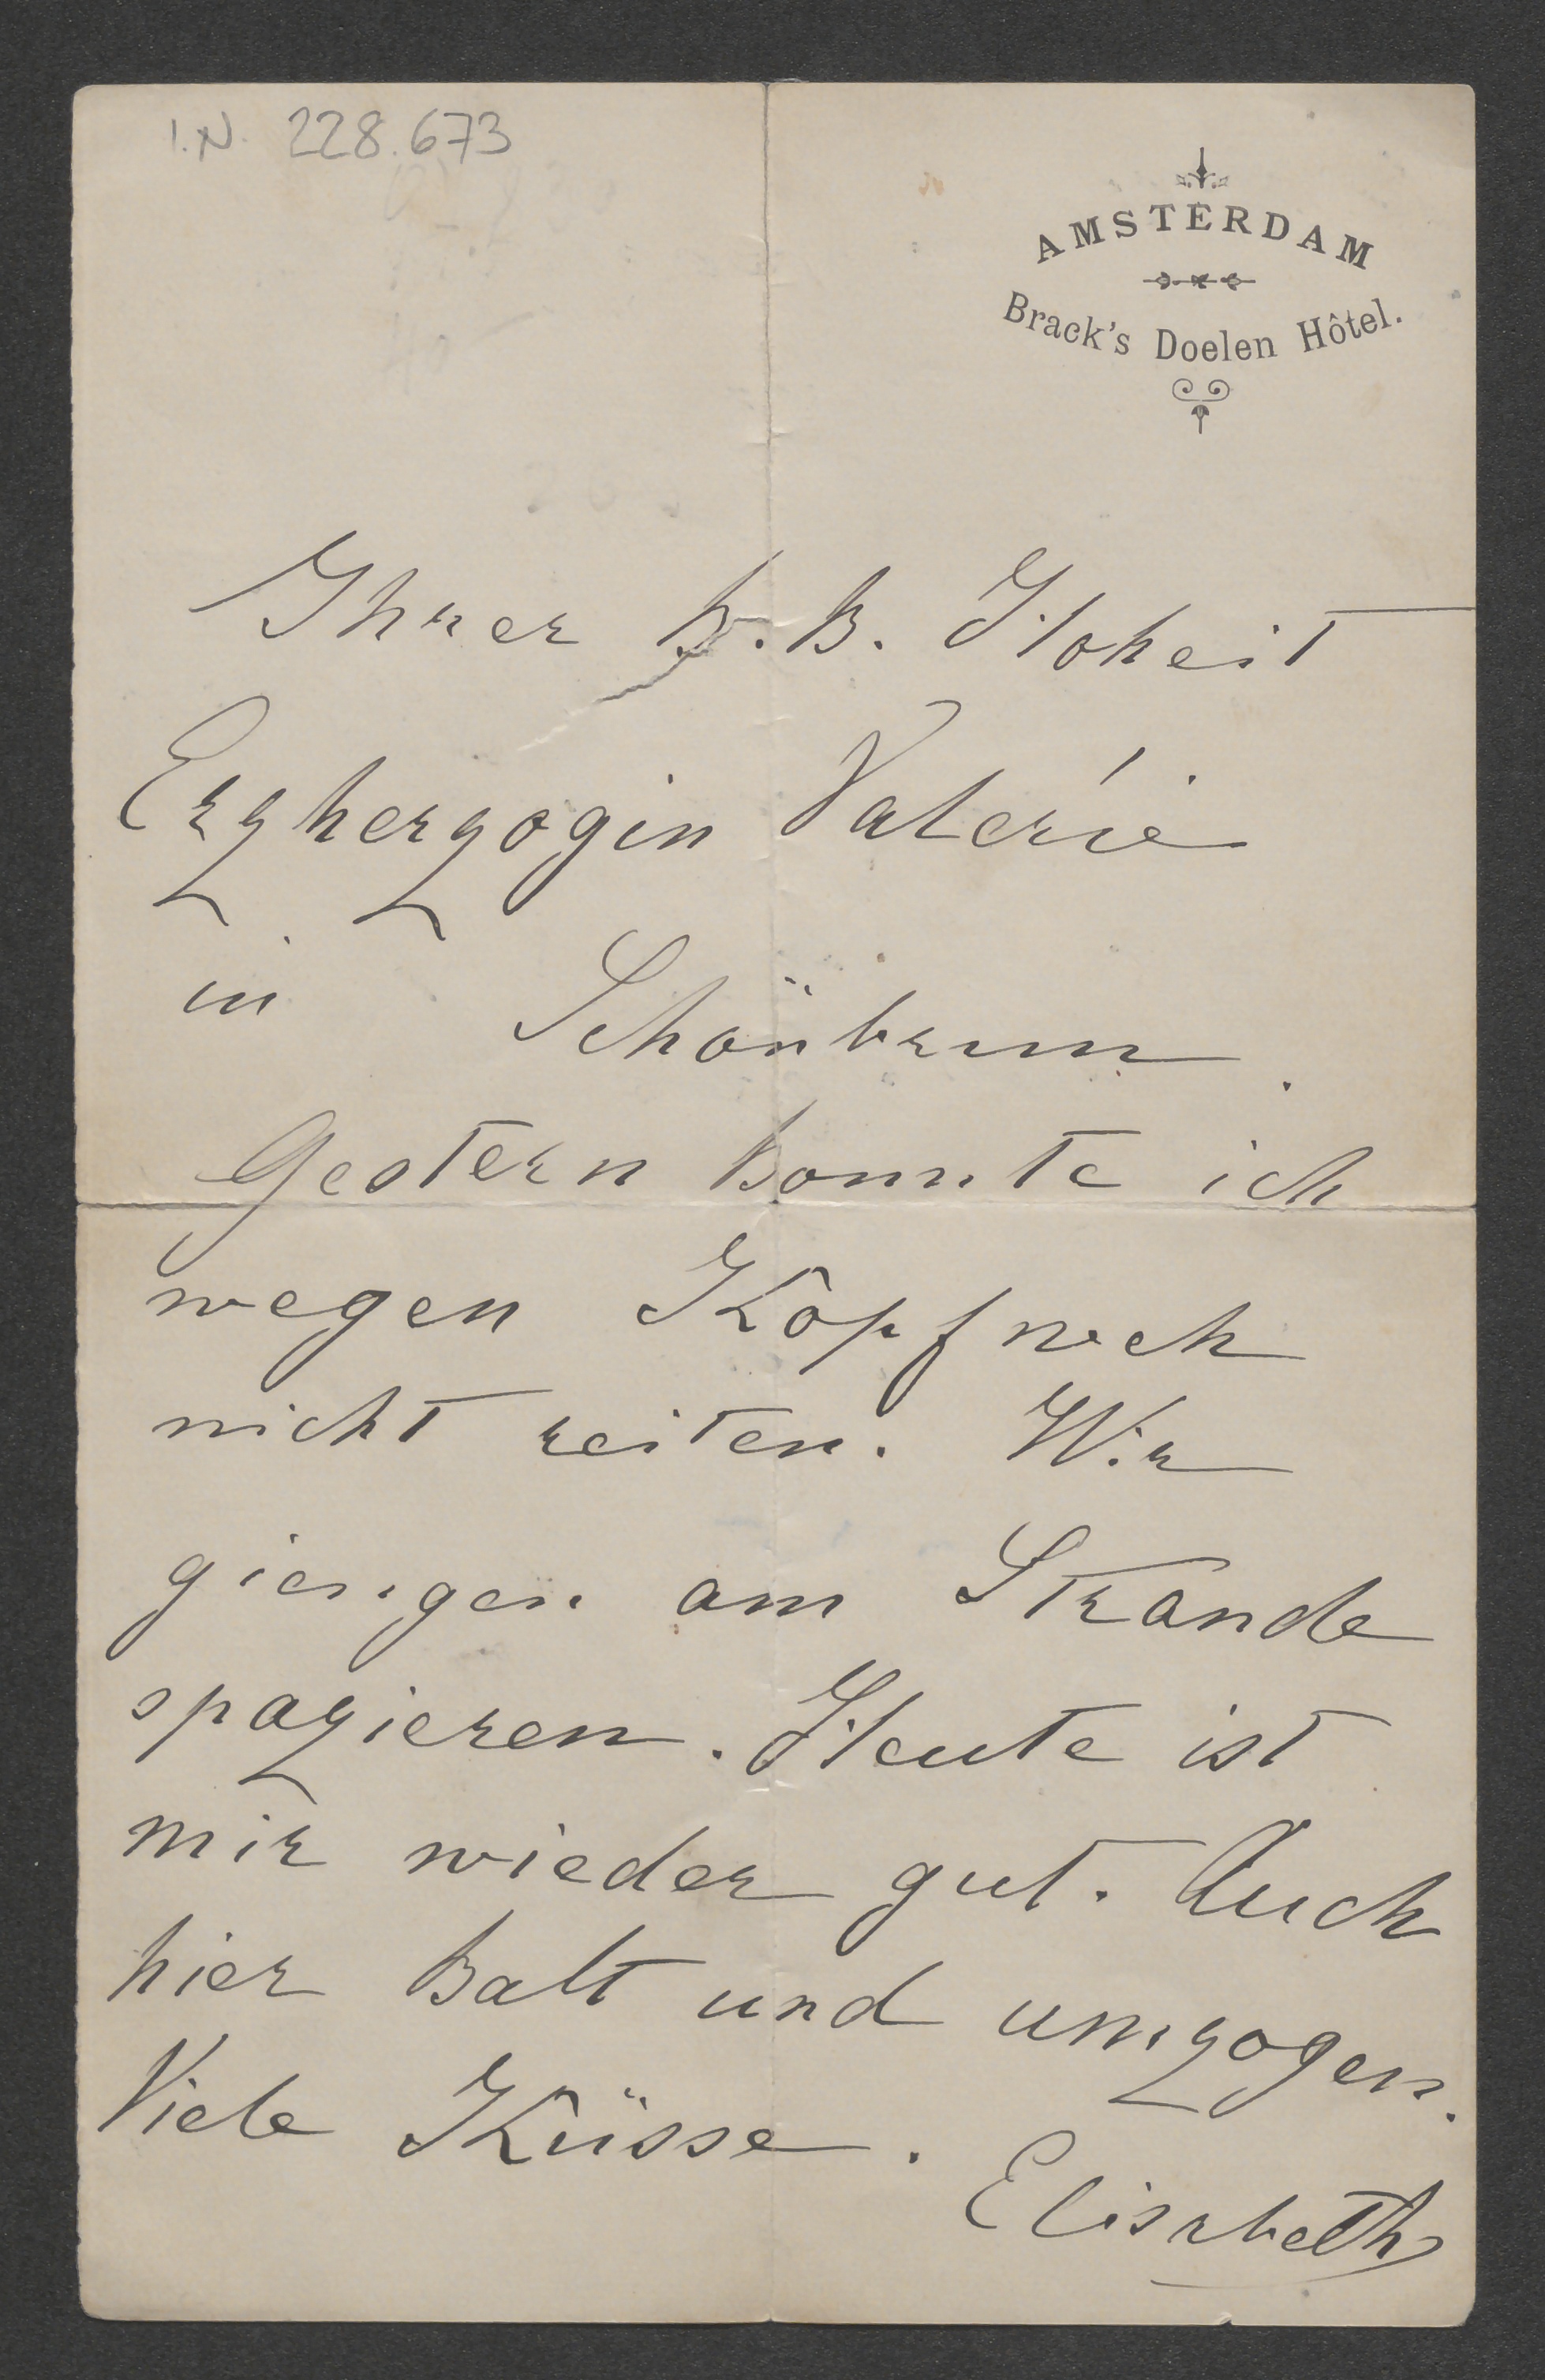 I.N. 228.673
AMSTERDAM
Brack's Doelen Hôtel.
Ihrer k. k. Hoheit
Erzherzogin Valérie
in Schönbrunn.
Gestern konnte ich
wegen Kopfweh
nicht reiten. Wir
giengen am Strande
spazieren. Heute ist
mir wieder gut. Auch
hier kalt und umzogen.
Viele Küsse.
Elisabeth